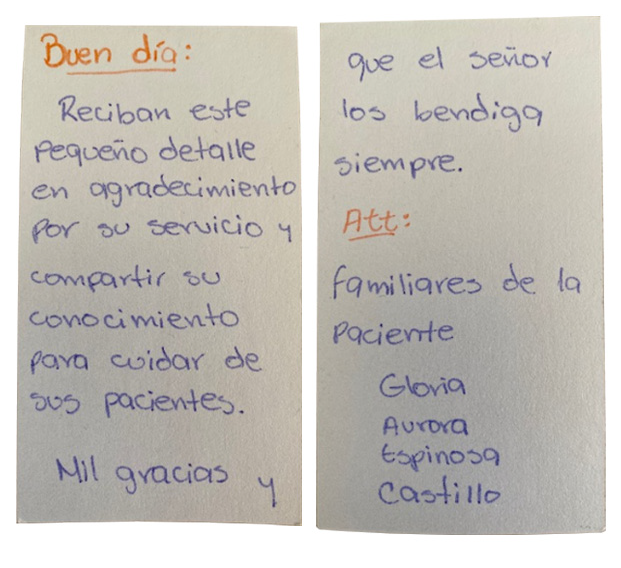 Buen día:
Reciban este
pequeño detalle
en agradecimiento
por su servicio y
compartir su
conocimiento
para cuidar de
sus pacientes.
Mil gracias y
que el señor
los bendiga
siempre.
Att:
familiares de la
paciente
Gloria
Aurora
Espinosa
Castillo